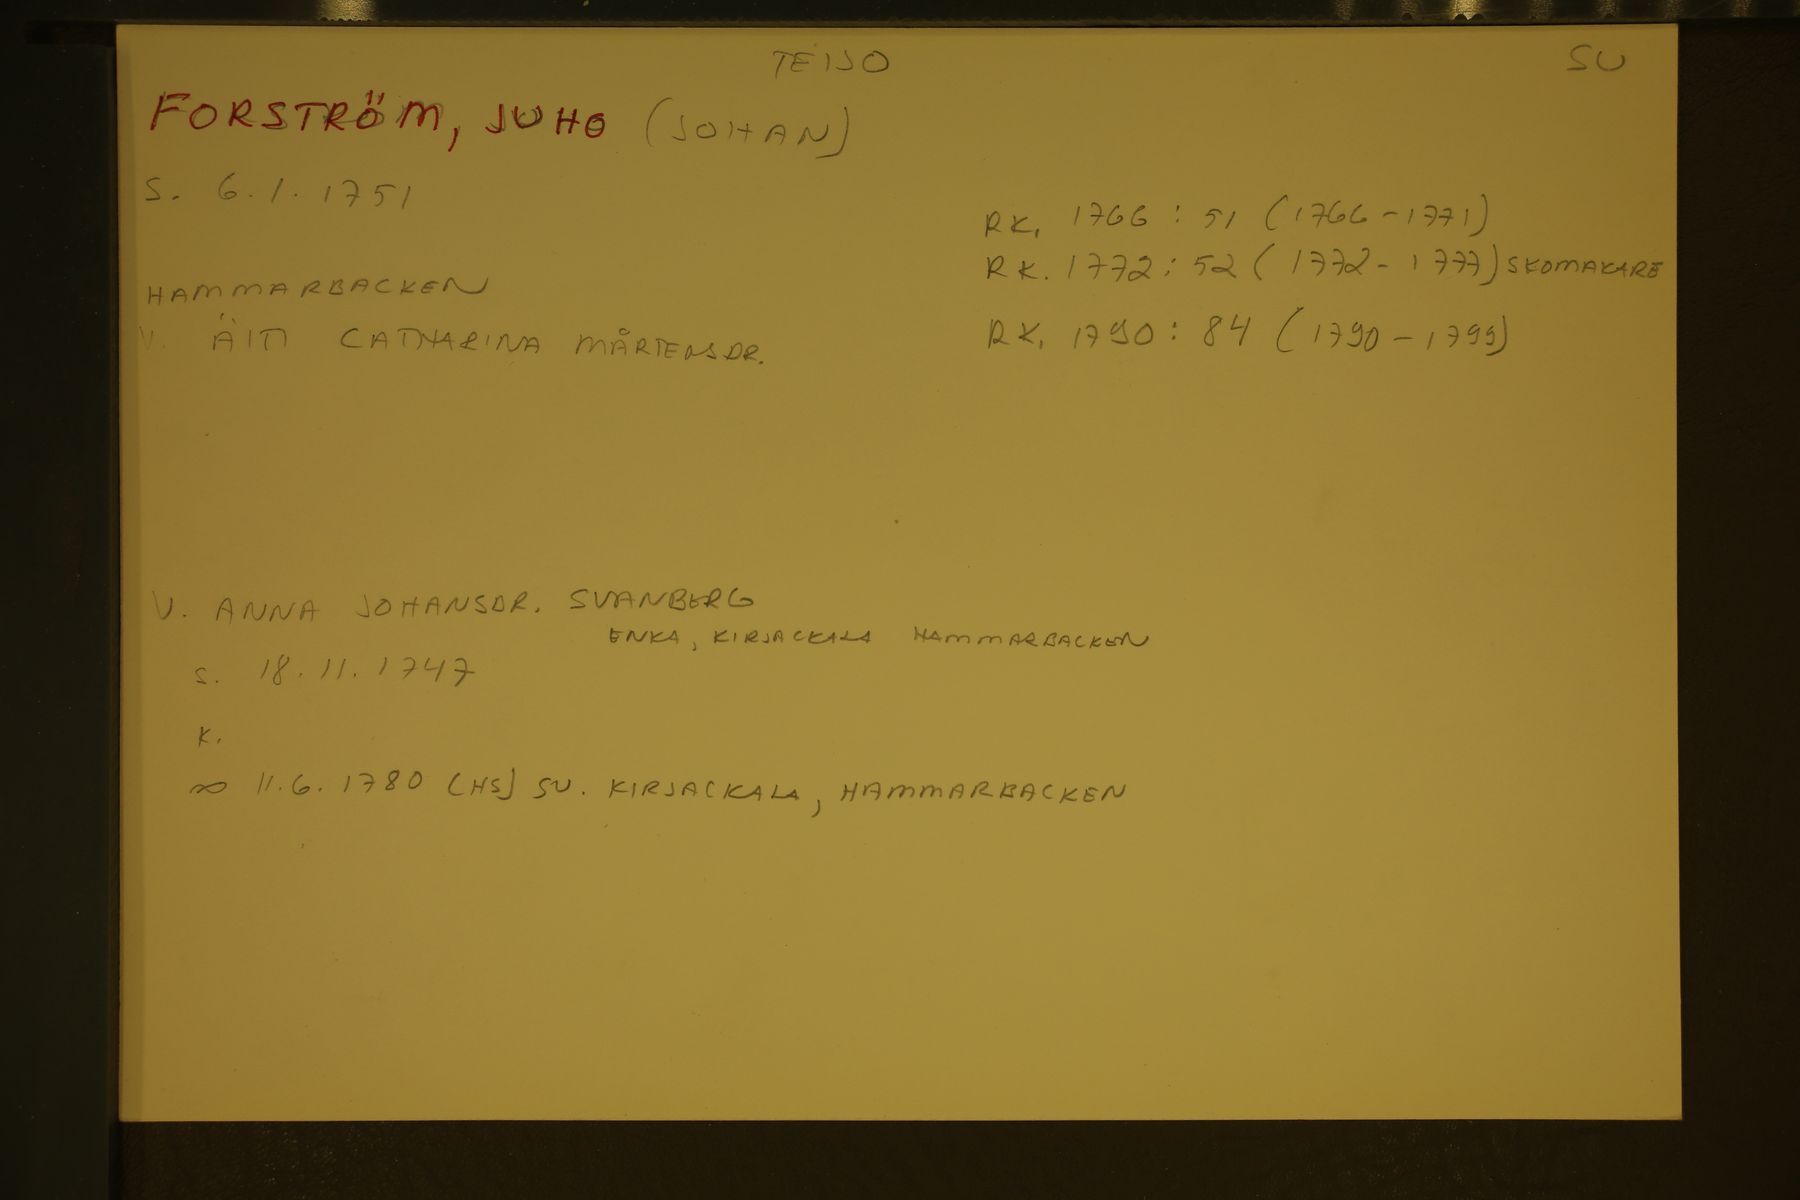 TEIJO
SU
FORSTRÖM, JUHO (JOHAN)
S. 6.1.1751
RK. 1766 : 51 (1766-1771)
RK. 1772 : 52 (1772-1777) SKOMAKARE
HAMMARBACKEN
V. ÄITI CATHARINA MÅRTENSDR.
RK. 1790 : 84 (1790-1799)
V. ANNA JOHANSDR. SVANBERG
ENKA, KIRJACKALA HAMMARBACKEN
S. 18.11.1747
K.
∞ 11.6.1780 (HS) SU. KIRJACKALA, HAMMARBACKEN